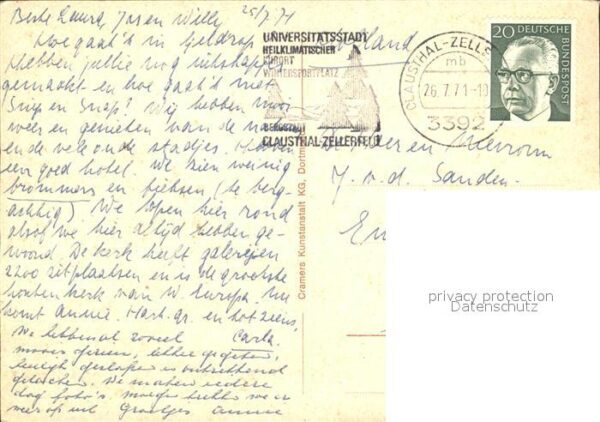 Beste Laura, Jos en Willy 25/7 71
Hoe gaat 't in Geldrop
Hebben jullie nog
gemacht en hoe gaat 't met
Snip en Snap? Wij hebben mooi
weer en genieten van de
en de vele oude stadjes.
een goed hotel. We zien weinig
brommers en fietsen (te berg-
achtig) We lopen hier rond
alsof we hier altijd hebben ge-
woond. De kerk heeft galerijen
2200 zitplaatsen en is de grootste
houten kerk van W. Europa. Nu
komt Annie. Hart. gr. en tot ziens,
Carla.
We hebben al zoveel
moois gezien, lekker gegeten,
heerlijk geslapen en ontzettend
gelachen. We maken iedere
dag foto's. morgen trekken we
weer op uit Groetjes Annie
UNIVERSITÄTSSTADT
HEILKLIMATISCHER
KURORT
WINTERSPORTPLATZ
BERGSTADT
CLAUSTHAL-ZELLERFELD
CLAUSTHAL-ZELLE
mb
26.7.71-18
3392
20 DEUTSCHE
BUNDESPOST
Holland
en Mevrouw
J. v. d. Sanden
Cramers Kunstanstalt KG, Dortm
privacy protection
Datenschutz